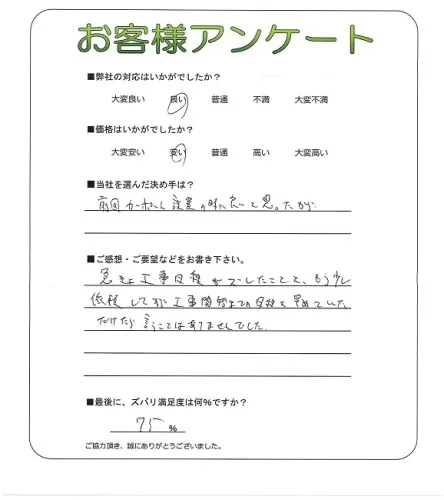 お客様アンケート
■弊社の対応はいかがでしたか？
大変良い 良い 普通 不満 大変不満
■価格はいかがでしたか？
大変安い 安い 普通 高い 大変高い
■当社を選んだ決め手は？
前回カーポート設置の時に良いと思ったから
■ご感想・ご要望などをお書き下さい。
急きょ工事日程が したことで、もう少し
してか工事開始までの日程を いていた
だけたら言うことはありませんでした。
■最後に、ズバリ満足度は何％ですか？
75 ％
ご協力頂き、誠にありがとうございました。